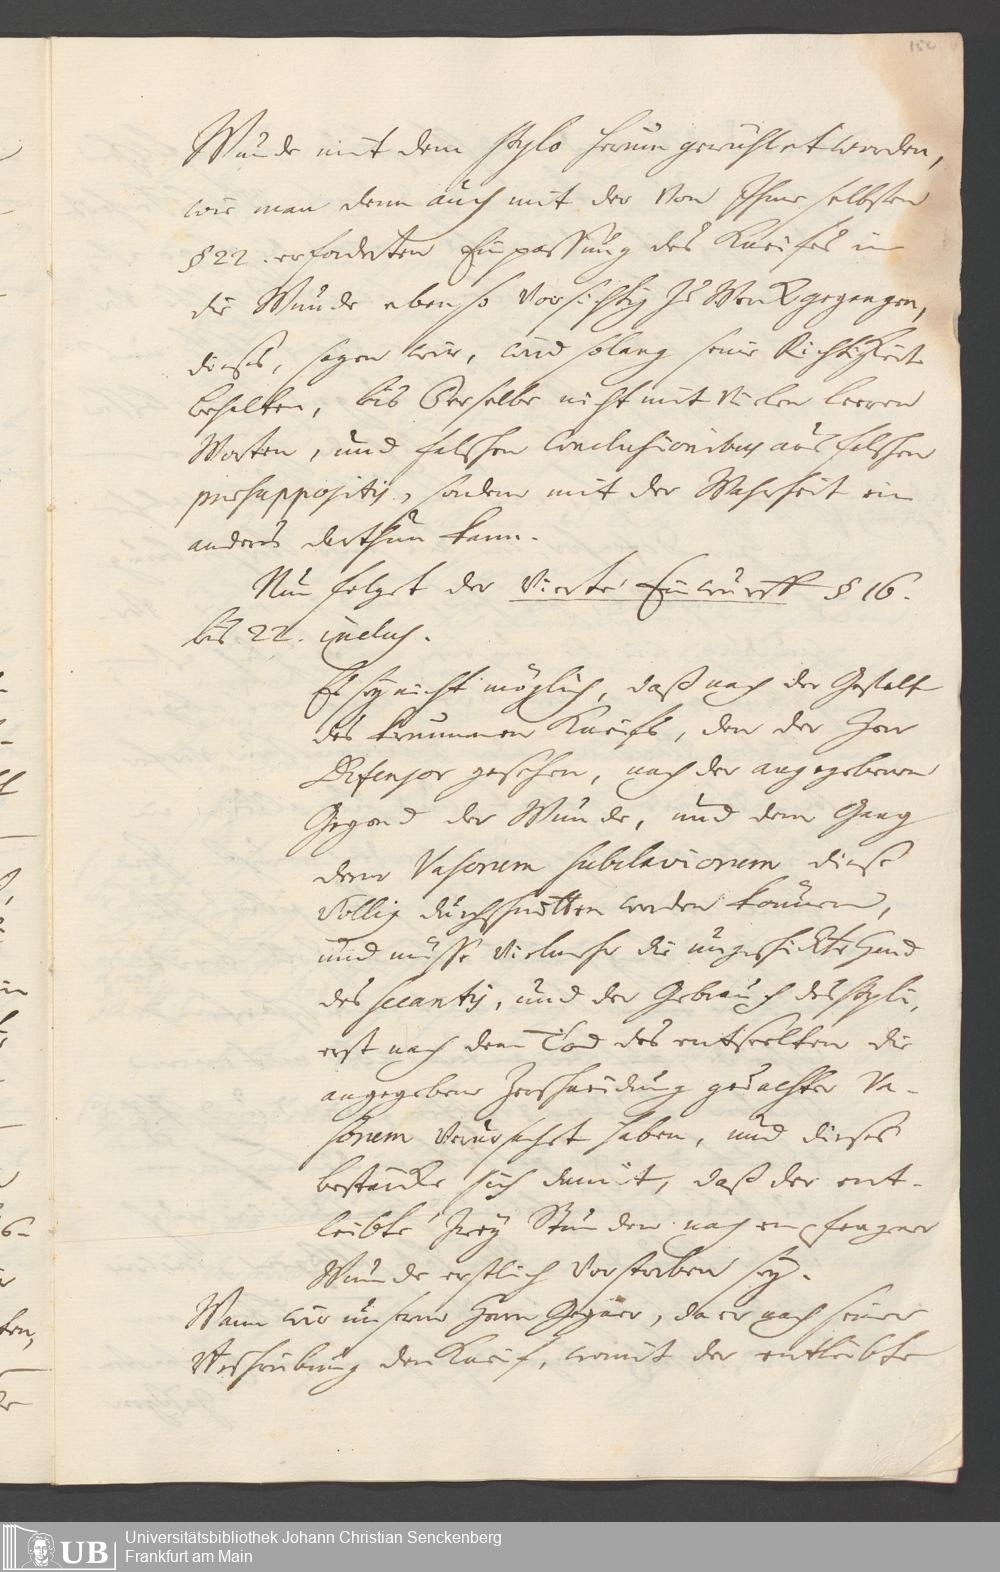 152
Wunde mit dem stylo herum gewühlet worden,
wie man denn auch mit der von Ihme selbsten
§ 22. erforderten Einpassung des Kneifes in
die Wunde ebenso vorsichtig zu Werck gegangen,
dieses, sagen wir, wird solang seine Richtigkeit
behalten, bis Derselbe nicht mit vielen leeren
Worten, und falschen Conclusionibus aus falschen
præsuppositis, sondern mit der Wahrheit ein
anders darthun kann.
Nun folget der Vierte Einwurff § 16.
bis 22. inclus.
Es sey nicht möglich, daß nach der Gestalt
des krummen Kneifs, den der Herr
Defensor gesehen, nach der angegebenen
Gegend der Wunde, und dem Gang
derer Vasorum subclaviorum diese
völlig durchschnitten werden können,
und müsse vielmehr die ungeschickte Hand
des secantis, und der Gebrauch des styli,
erst nach dem Tod des entseelten die
angegebene Zerschneidung gedachter Va-
sorum verursachet haben, und dieses
bestärcke sich damit, daß der ent-
leibte zwey Stunden nach empfangener
Wunde erstlich verstorben sey.
Wann wir unserm Herrn Gegner, da er nach seiner
Beschreibung den Kneif, womit der entleibte
UB
Universitätsbibliothek Johann Christian Senckenberg
Frankfurt am Main